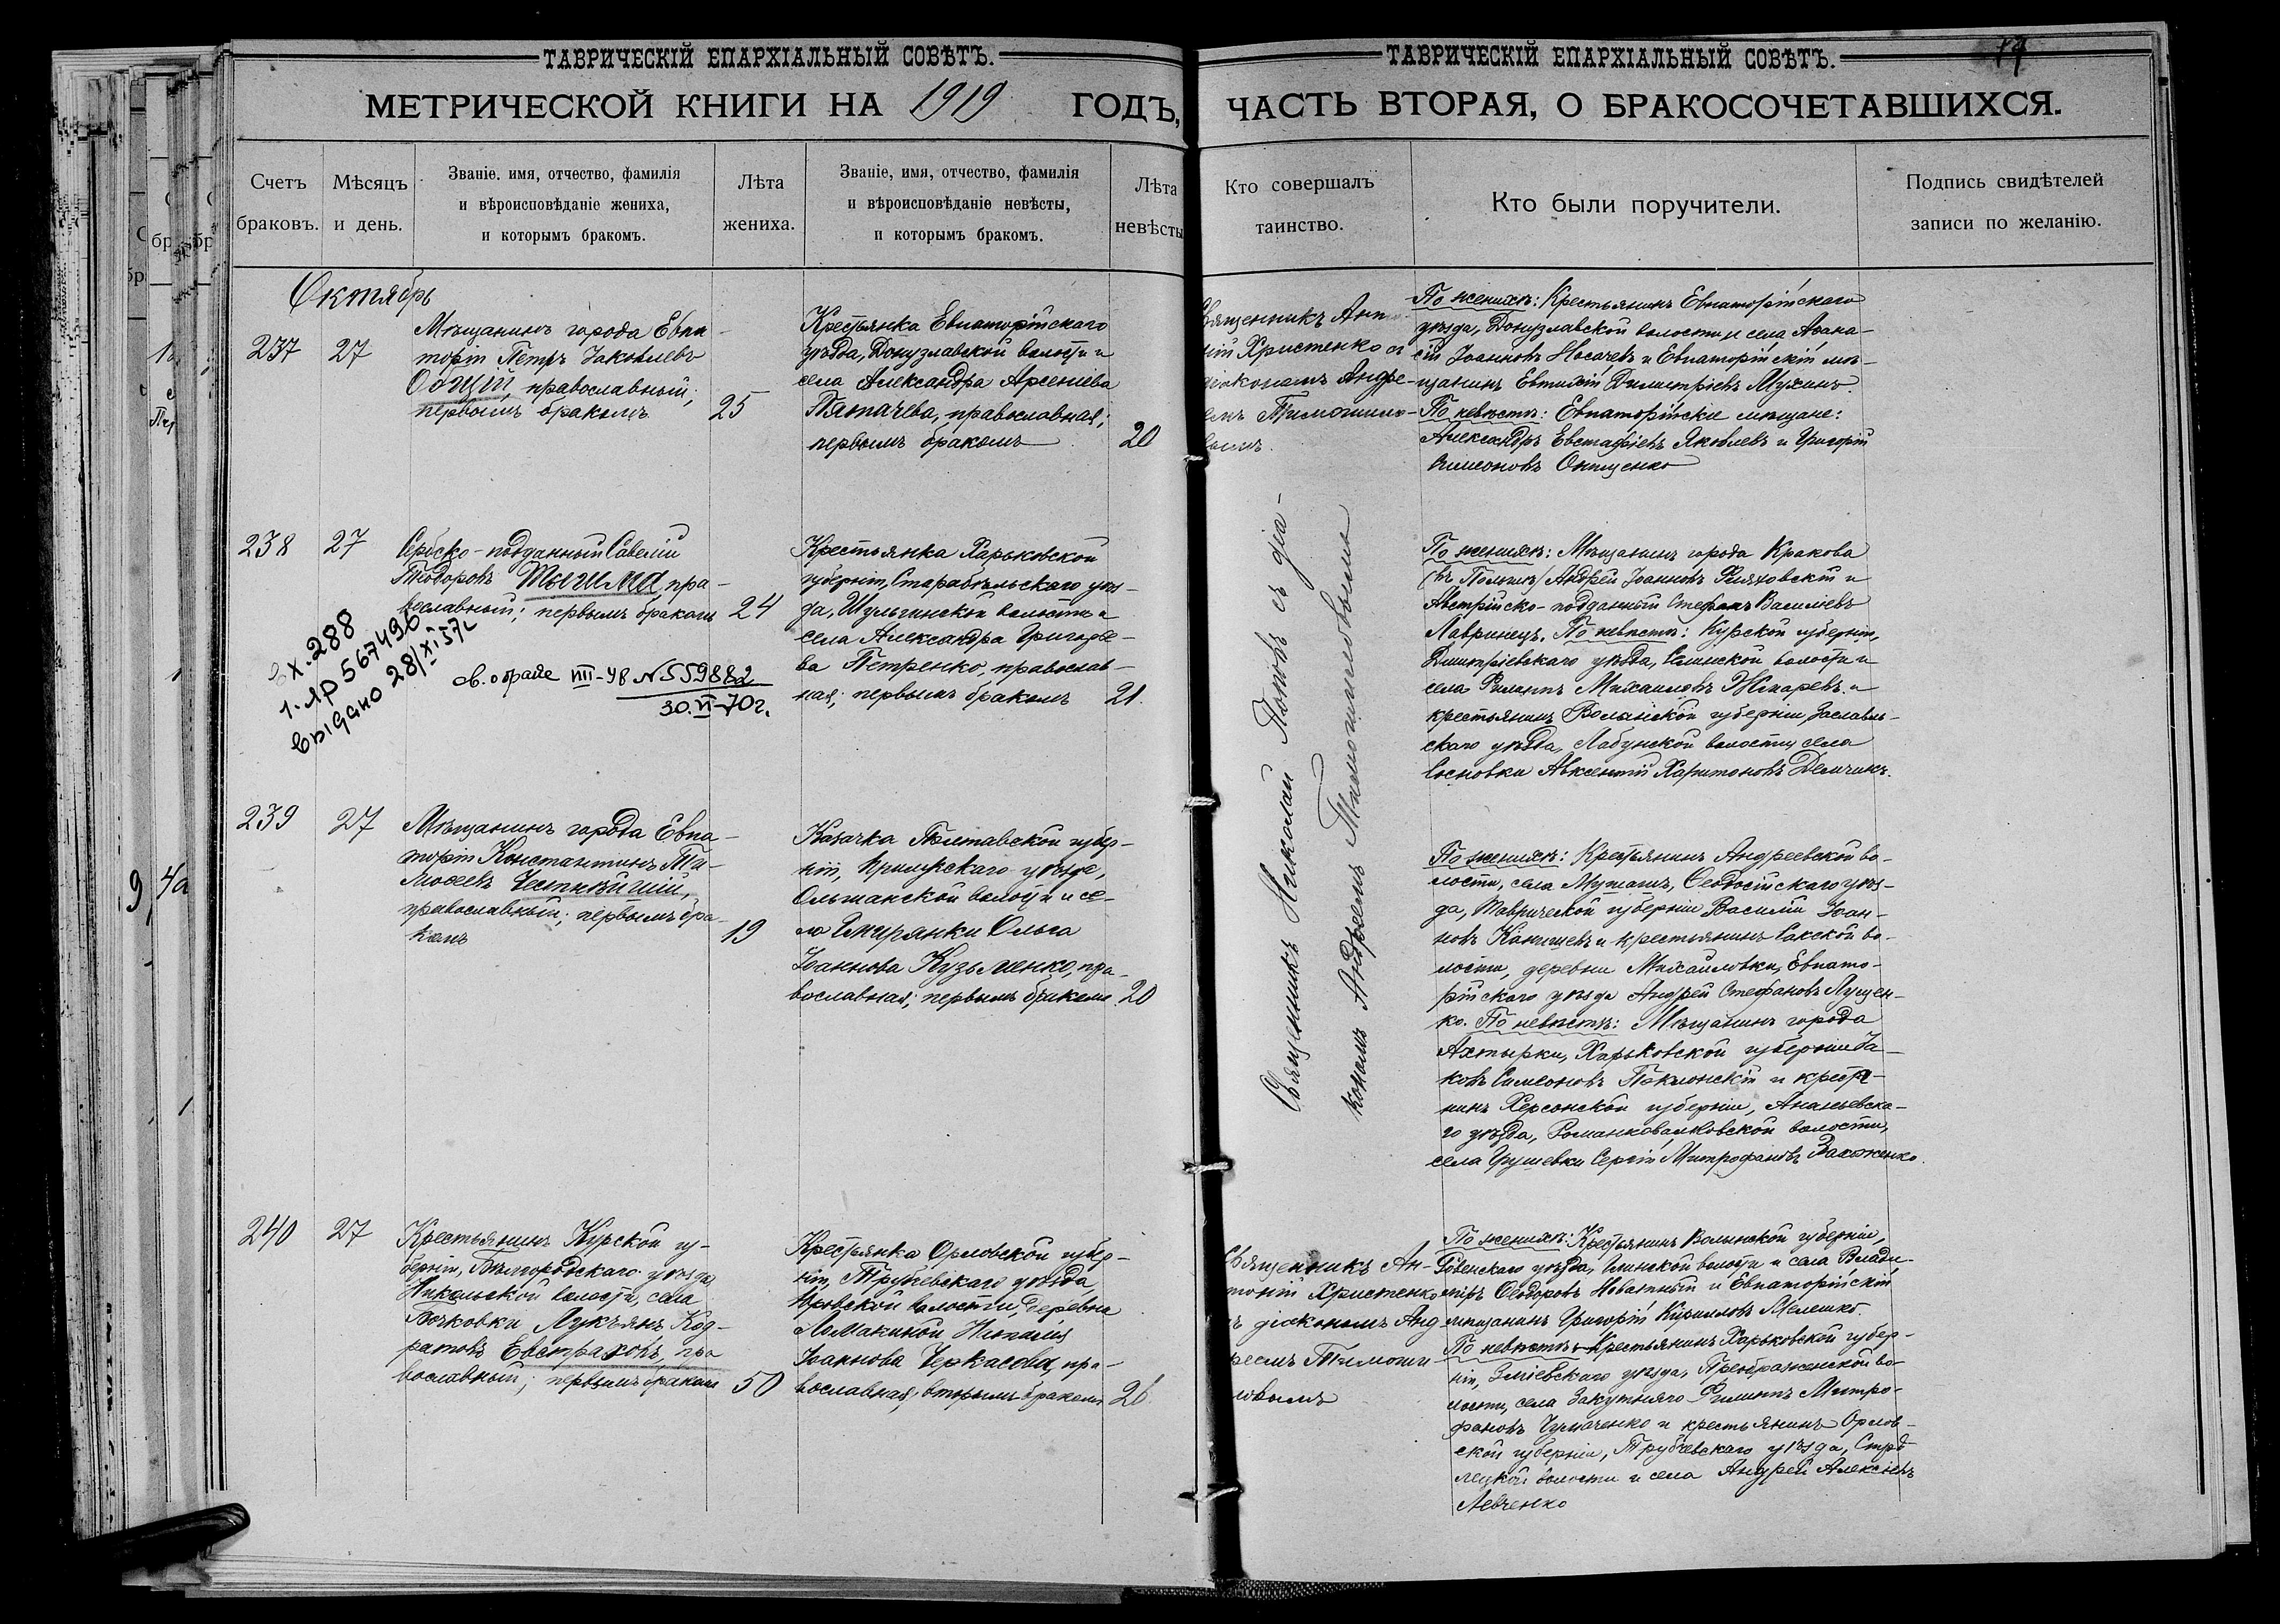 ТАВРИЧЕСКІЙ ЕПАРХІАЛЬНЫЙ СОВѢТЪ.
МЕТРИЧЕСКОЙ КНИГИ НА 1919 ГОДЪ,
Счетъ браковъ.
Мѣсяцъ и день.
Званіе, имя, отчество, фамилія
и вѣроисповѣданіе жениха,
и которымъ бракомъ.
Лѣта жениха.
Званіе, имя, отчество, фамилія
и вѣроисповѣданіе невѣсты,
и которымъ бракомъ.
Лѣта невѣсты
ТАВРИЧЕСКІЙ ЕПАРХІАЛЬНЫЙ СОВѢТЪ.
ЧАСТЬ ВТОРАЯ, О БРАКОСОЧЕТАВШИХСЯ.
Кто совершалъ
таинство.
Кто были поручители.
Подпись свидѣтелей
записи по желанію.
Октябрь
237
27
Мѣщанинъ города Евпа-
торіи Петръ Іаковлевъ
православный;
первымъ бракомъ
25
Крестьянка Евпаторійскаго
уѣзда, Донузлавской волости и
села Александра Арсеніева
православная;
первымъ бракомъ
20
Священникъ Ант
ній Христенко съ
діакономъ Андре-
емъ Тимошино-
вымъ.
По женихѣ: Крестьянинъ Евпаторійскаго
уѣзда, Донузлавской волости и села Аѳана-
сій Іоанновъ Носачевъ и Евпаторійскій мѣ-
щанинъ Евтихій Димитріевъ Мухинъ
По невѣстѣ: Евпаторійскіе мѣщане:
Александръ Евстафіевъ Яковлевъ и Григорій
Симеоновъ Онищенко
238
27
Сербско-подданный Савелій
Тѳодоровъ пра-
вославный; первымъ бракомъ
24
вх. 288
567496
выдано 28/XI 57г
св. о браке VIII-48 N 559882
30.VI-70г.
Крестьянка Харьковской
губерніи, Старобѣльскаго уѣз-
да, Шульгинской волости и
села Александра Григорье-
ва Петренко, православ-
ная; первымъ бракомъ
21.
Священникъ Николай Поповъ съ діа-
кономъ Андреемъ Тимошиновымъ
По женихѣ: Мѣщанинъ города Кракова
(въ Польшѣ) Андрей Іоанновъ и
Австрійско-подданный Стефанъ Василіевъ
Лавринецъ. По невѣстѣ: Курской губерніи,
Дмитріевскаго уѣзда, волости и
села Филиппъ Михаиловъ и
крестьянинъ Волынской губерніи, Заславль-
скаго уѣзда, Лабунской волости, села
Сосновки Авксентій Харитоновъ Демчикъ.
239
27
Мѣщанинъ города Евпа-
торіи Константинъ Ти-
моѳеевъ Честнѣйшій,
православный; первымъ бра-
комъ
19
Казачка Полтавской губер-
ніи, Прилукскаго уѣзда,
Ольшанской волости и се-
ла Ольга
Іоаннова Кузьменко, пра-
вославная; первымъ бракомъ
20
По женихѣ: Крестьянинъ Андреевской во-
лости, села Ѳеодосійскаго уѣз-
да, Таврической губерніи Василій Іоан-
новъ Канищевъ и крестьянинъ Сакской во-
лости, деревни Михайловки, Евпато-
рійскаго уѣзда Андрей Стефановъ Лущен-
ко. По невѣстѣ: Мѣщанинъ города
Ахтырки, Харьковской губерніи Іа-
ковъ Симеоновъ Поклонскій и крестья-
нинъ Херсонской губерніи, Ананьевска-
го уѣзда, волости,
села Грушевки Сергій Митрофановъ
240
27
Крестьянинъ Курской гу-
берніи, Бѣлгородскаго уѣзда,
Никольской волости, села
Бочковки Лукъянъ Код-
ратовъ Евстраховъ, пра
вославный; первымъ бракомъ
50
Крестьянка Орловской губер-
ніи, Трубчевскаго уѣзда,
волости, деревни
Ломакиной Наталія
Іоаннова Черкасова, пра-
вославная; вторымъ бракомъ
26.
Священникъ Ан-
тоній Христенко
съ діакономъ Анд-
реемъ Тимоши
новымъ
По женихѣ: Крестьянинъ Волынской губерніи,
Ровенскаго уѣзда, волости и села Влади-
міръ Ѳеодоровъ и Евпаторійскій
мѣщанинъ Григорій Кирилловъ Мелешко.
По невѣстѣ: Крестьянинъ Харьковской губер-
ніи, Зміевскаго уѣзда, Преображенской во-
лости, села Филиппъ Митро-
фановъ Чумаченко и крестьянинъ Орлов-
ской губерніи, Трубчевскаго уѣзда,
волости и села Андрей Алексіевъ
Левченко